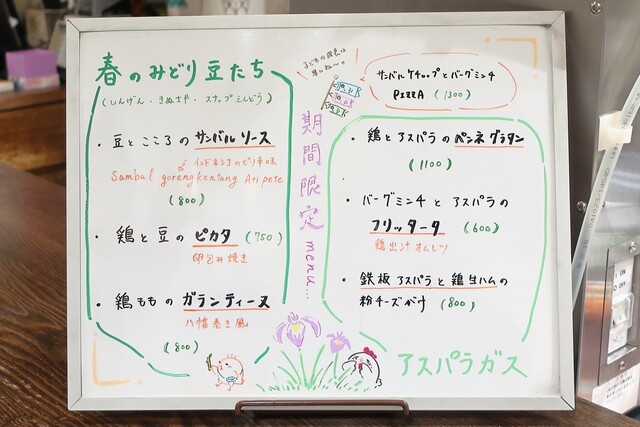 春のみどり豆たち
(いんげん・きぬさや・スナップえんどう)
・豆とこころの サンバルソース
インドネシアのピリ辛味
Sambal goreng kentang Ati pete
(800)
・鶏と豆の ピカタ (750)
卵包み焼き
・鶏ももの ガランティーヌ
八幡巻き風
(800)
子どもの成長は
早いねー。
期間限定 menu...
サンバルケチャップとバーグミンチ
PIZZA (1300)
・鶏とアスパラの ペンネグラタン
(1100)
・バーグミンチとアスパラの
フリッタータ (600)
鶏出汁オムレツ
・鉄板 アスパラと鶏生ハムの
粉チーズがけ (800)
アスパラガス
ON
OFF